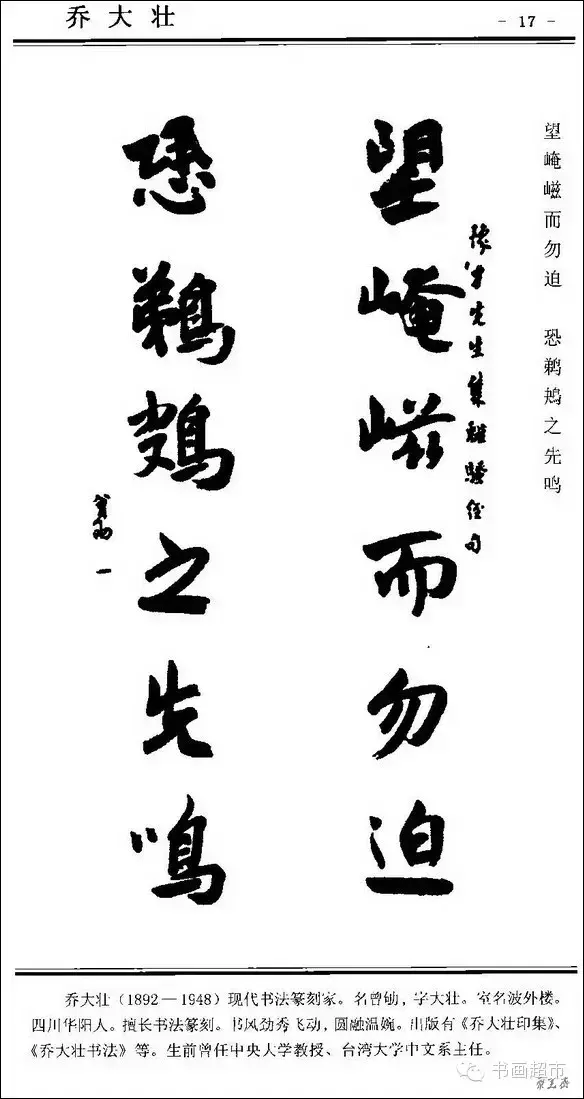 乔大壮
- 17 -
望崦嵫而勿迫 恐鹈鴂之先鸣
豫才先生集離騷經句
望崦嵫而勿迫
恐鵜鴂之先鳴
乔大壮(1892—1948)现代书法篆刻家。名曾劬,字大壮。室名波外楼。
四川华阳人。擅长书法篆刻。书风劲秀飞动,圆融温婉。出版有《乔大壮印集》、
《乔大壮书法》等。生前曾任中央大学教授、台湾大学中文系主任。
书画超市